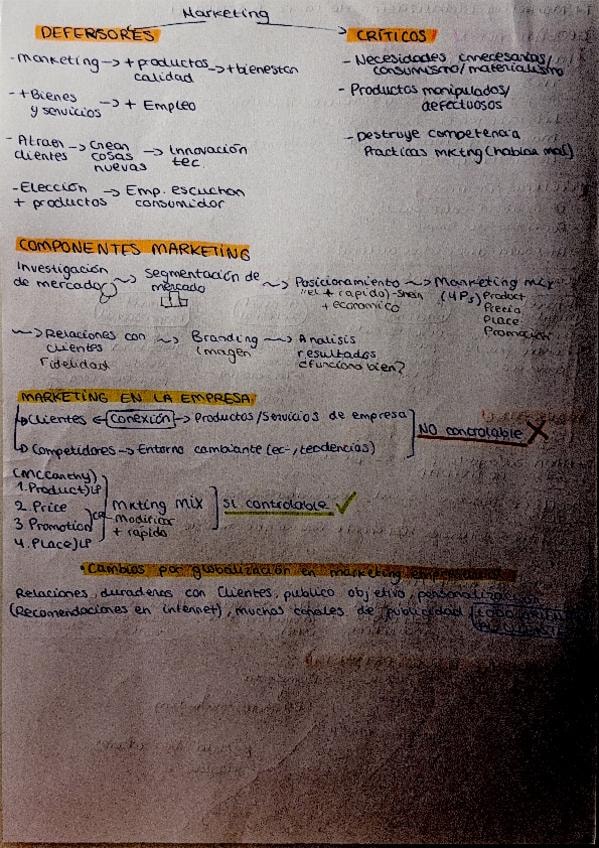 Marketing
DEFENSORES
CRÍTICOS
- Marketing → + productos → + bienestar
calidad
- + Bienes
y servicios → + Empleo
- Atraer → Crean → Innovación
clientes cosas tec.
nuevas
- Elección → Emp. escuchan
+ productos consumidor
- Necesidades innecesarias/
consumismo/materialismo
- Productos manipulados/
defectuosos
- Destruye competencia
Practicas mkting (hablar mal)
COMPONENTES MARKETING
Investigación
de mercado
Segmentación de
mercado
Posicionamiento
"el + rapido) - Shein
+ economico
Marketing mix
(4Ps) Product
Precio
Place
Promoción
→ Relaciones con
clientes
Fidelidad
Branding
Imagen
Analisis
resultados
¿funciona bien?
MARKETING EN LA EMPRESA
Clientes ← Conexión → Productos/Servicios de empresa
Competidores → Entorno cambiante (ec-, tendencias)
NO controlable X
(McCarthy)
1. Product) LP
2. Price
3 Promotion CP
4. Place) LP
Mkting Mix
modificar
+ rapido
Sí controlable ✓
· Cambios por globalización en marketing
Relaciones duraderas con clientes, publico objetivo, personalización
(Recomendaciones en internet), muchos canales de publicidad